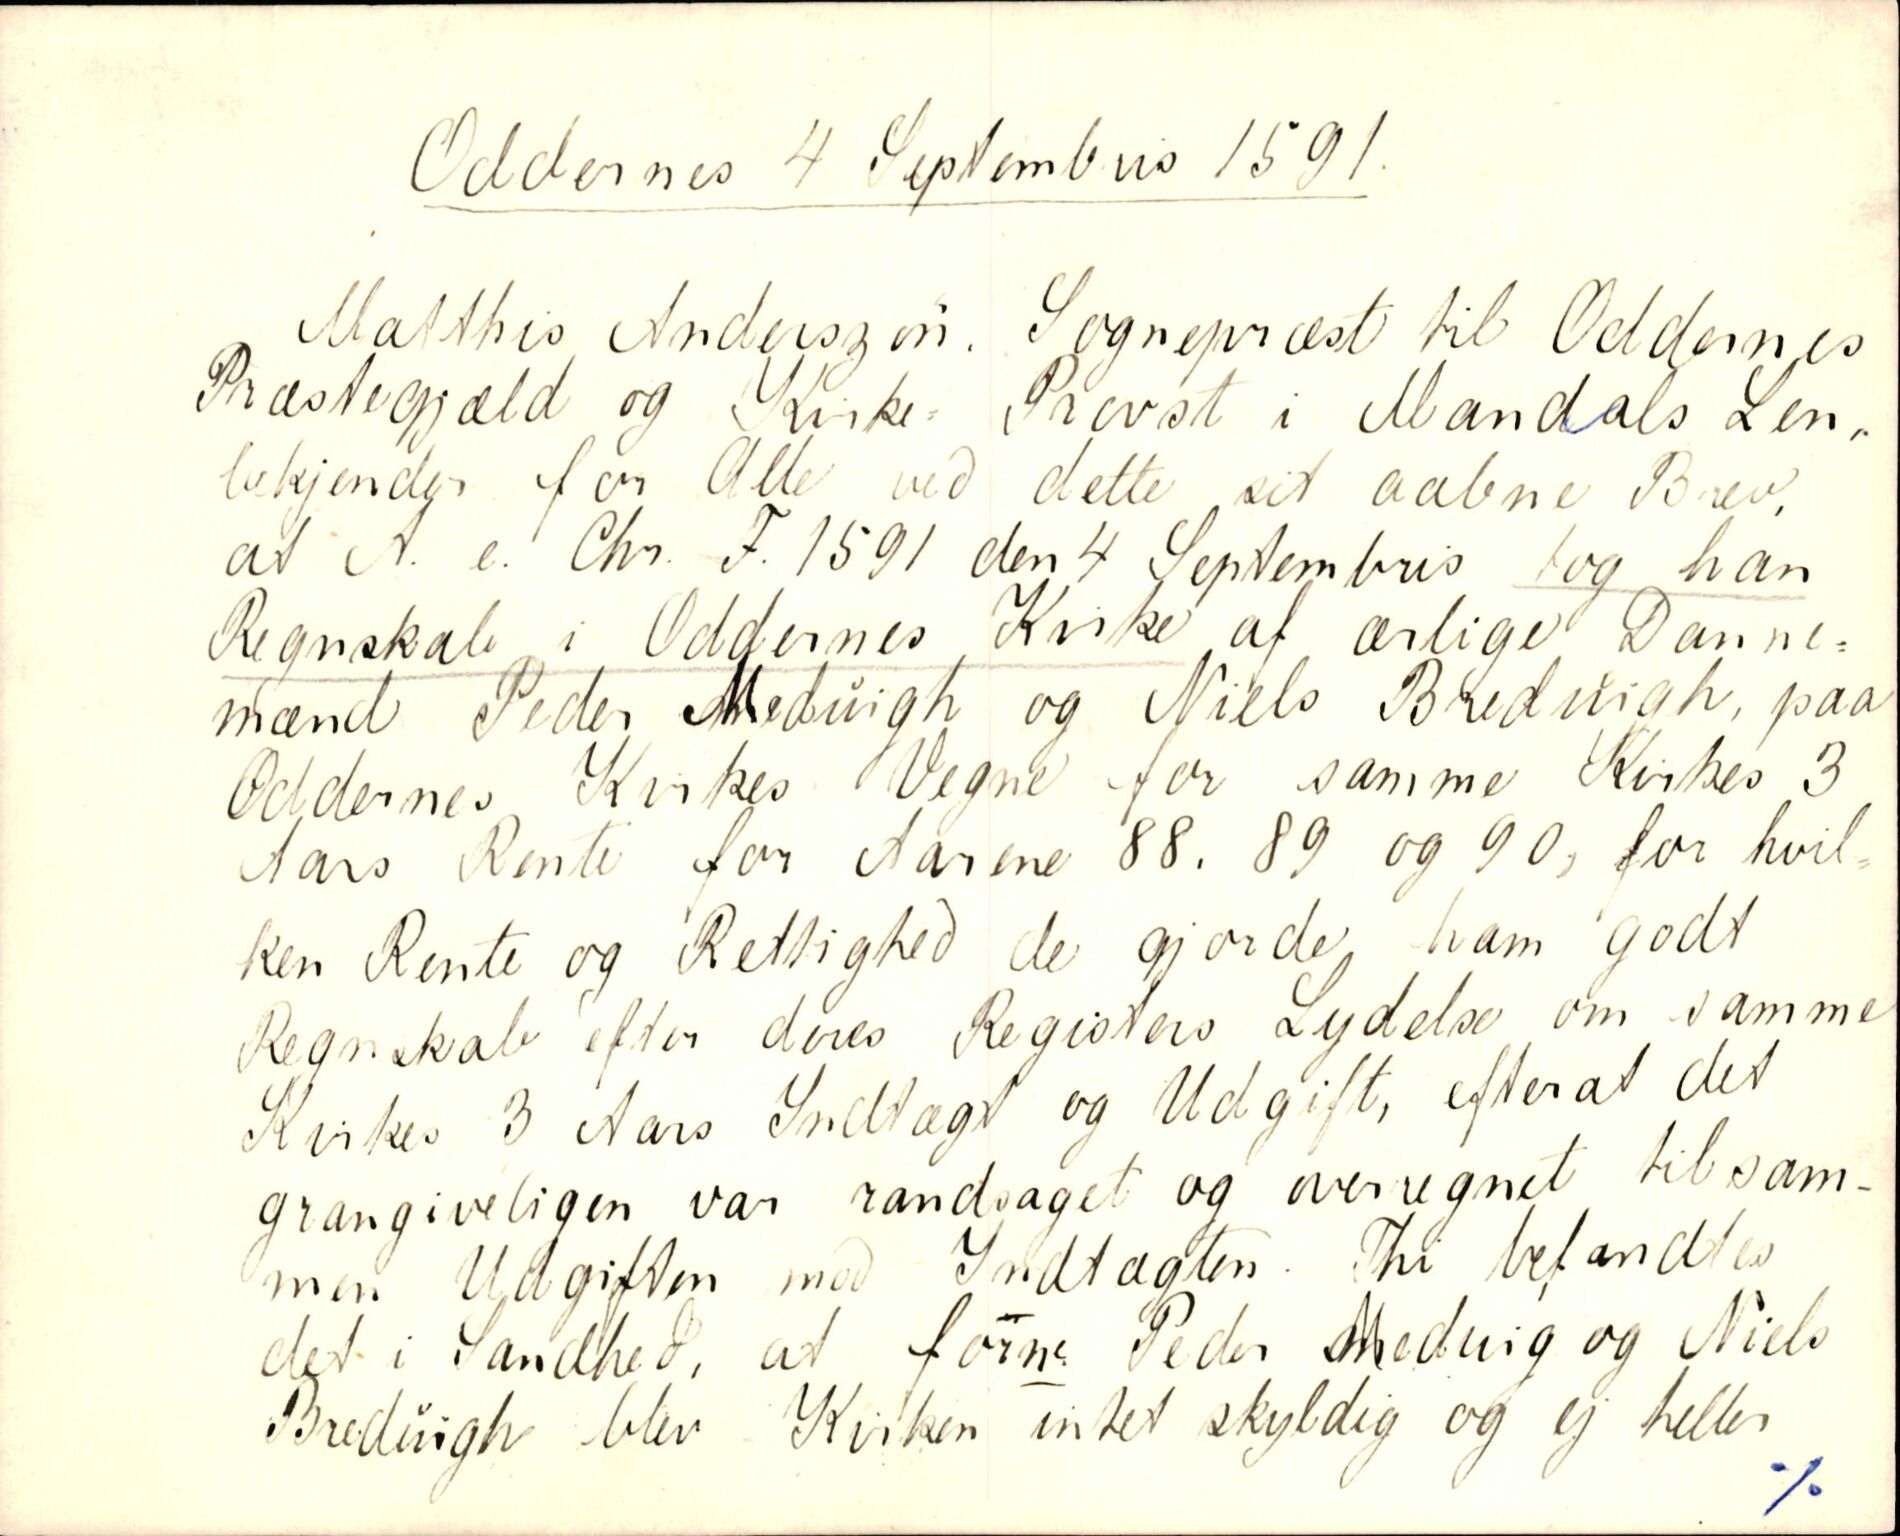 Oddernes 4 Septembris 1591.
Matthis Anderszøn. Sognepræst til Oddernes
Præstegjæld og Kirke= Provst i Mandals Len,
bekjender for Alle ved dette sit aabne Brev,
at A. e. Chr. F. 1591 den 4 Septembris tog han
Regnskab i Oddernes Kirke af ærlige Danne=
mænd Peder Meduigh og Niels Breduigh, paa
Oddernes Kirkes Vegne for samme Kirkes 3
Aars Rente for Aarene 88. 89 og 90, for hvil=
ken Rente og Rettighed de gjorde ham godt
Regnskab efter deres Registers Lydelse om samme
Kirkes 3 Aars Indtægt og Udgift, efterat det
grangiveligen var randsaget og overregnet tilsam-
men Udgiften mod Indtægten. Thi befandtes
det i Sandhed, at forne Peder Meduig og Niels
Breduigh blev Kirken intet skyldig og ej heller
./.